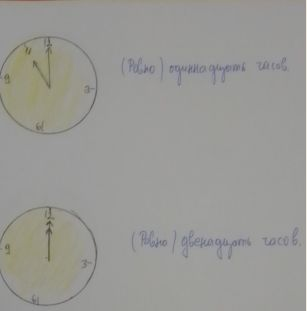 12
11
9
3
6
(Равно) одиннадцать часов.
12
9
3
6
(Равно) двенадцать часов.